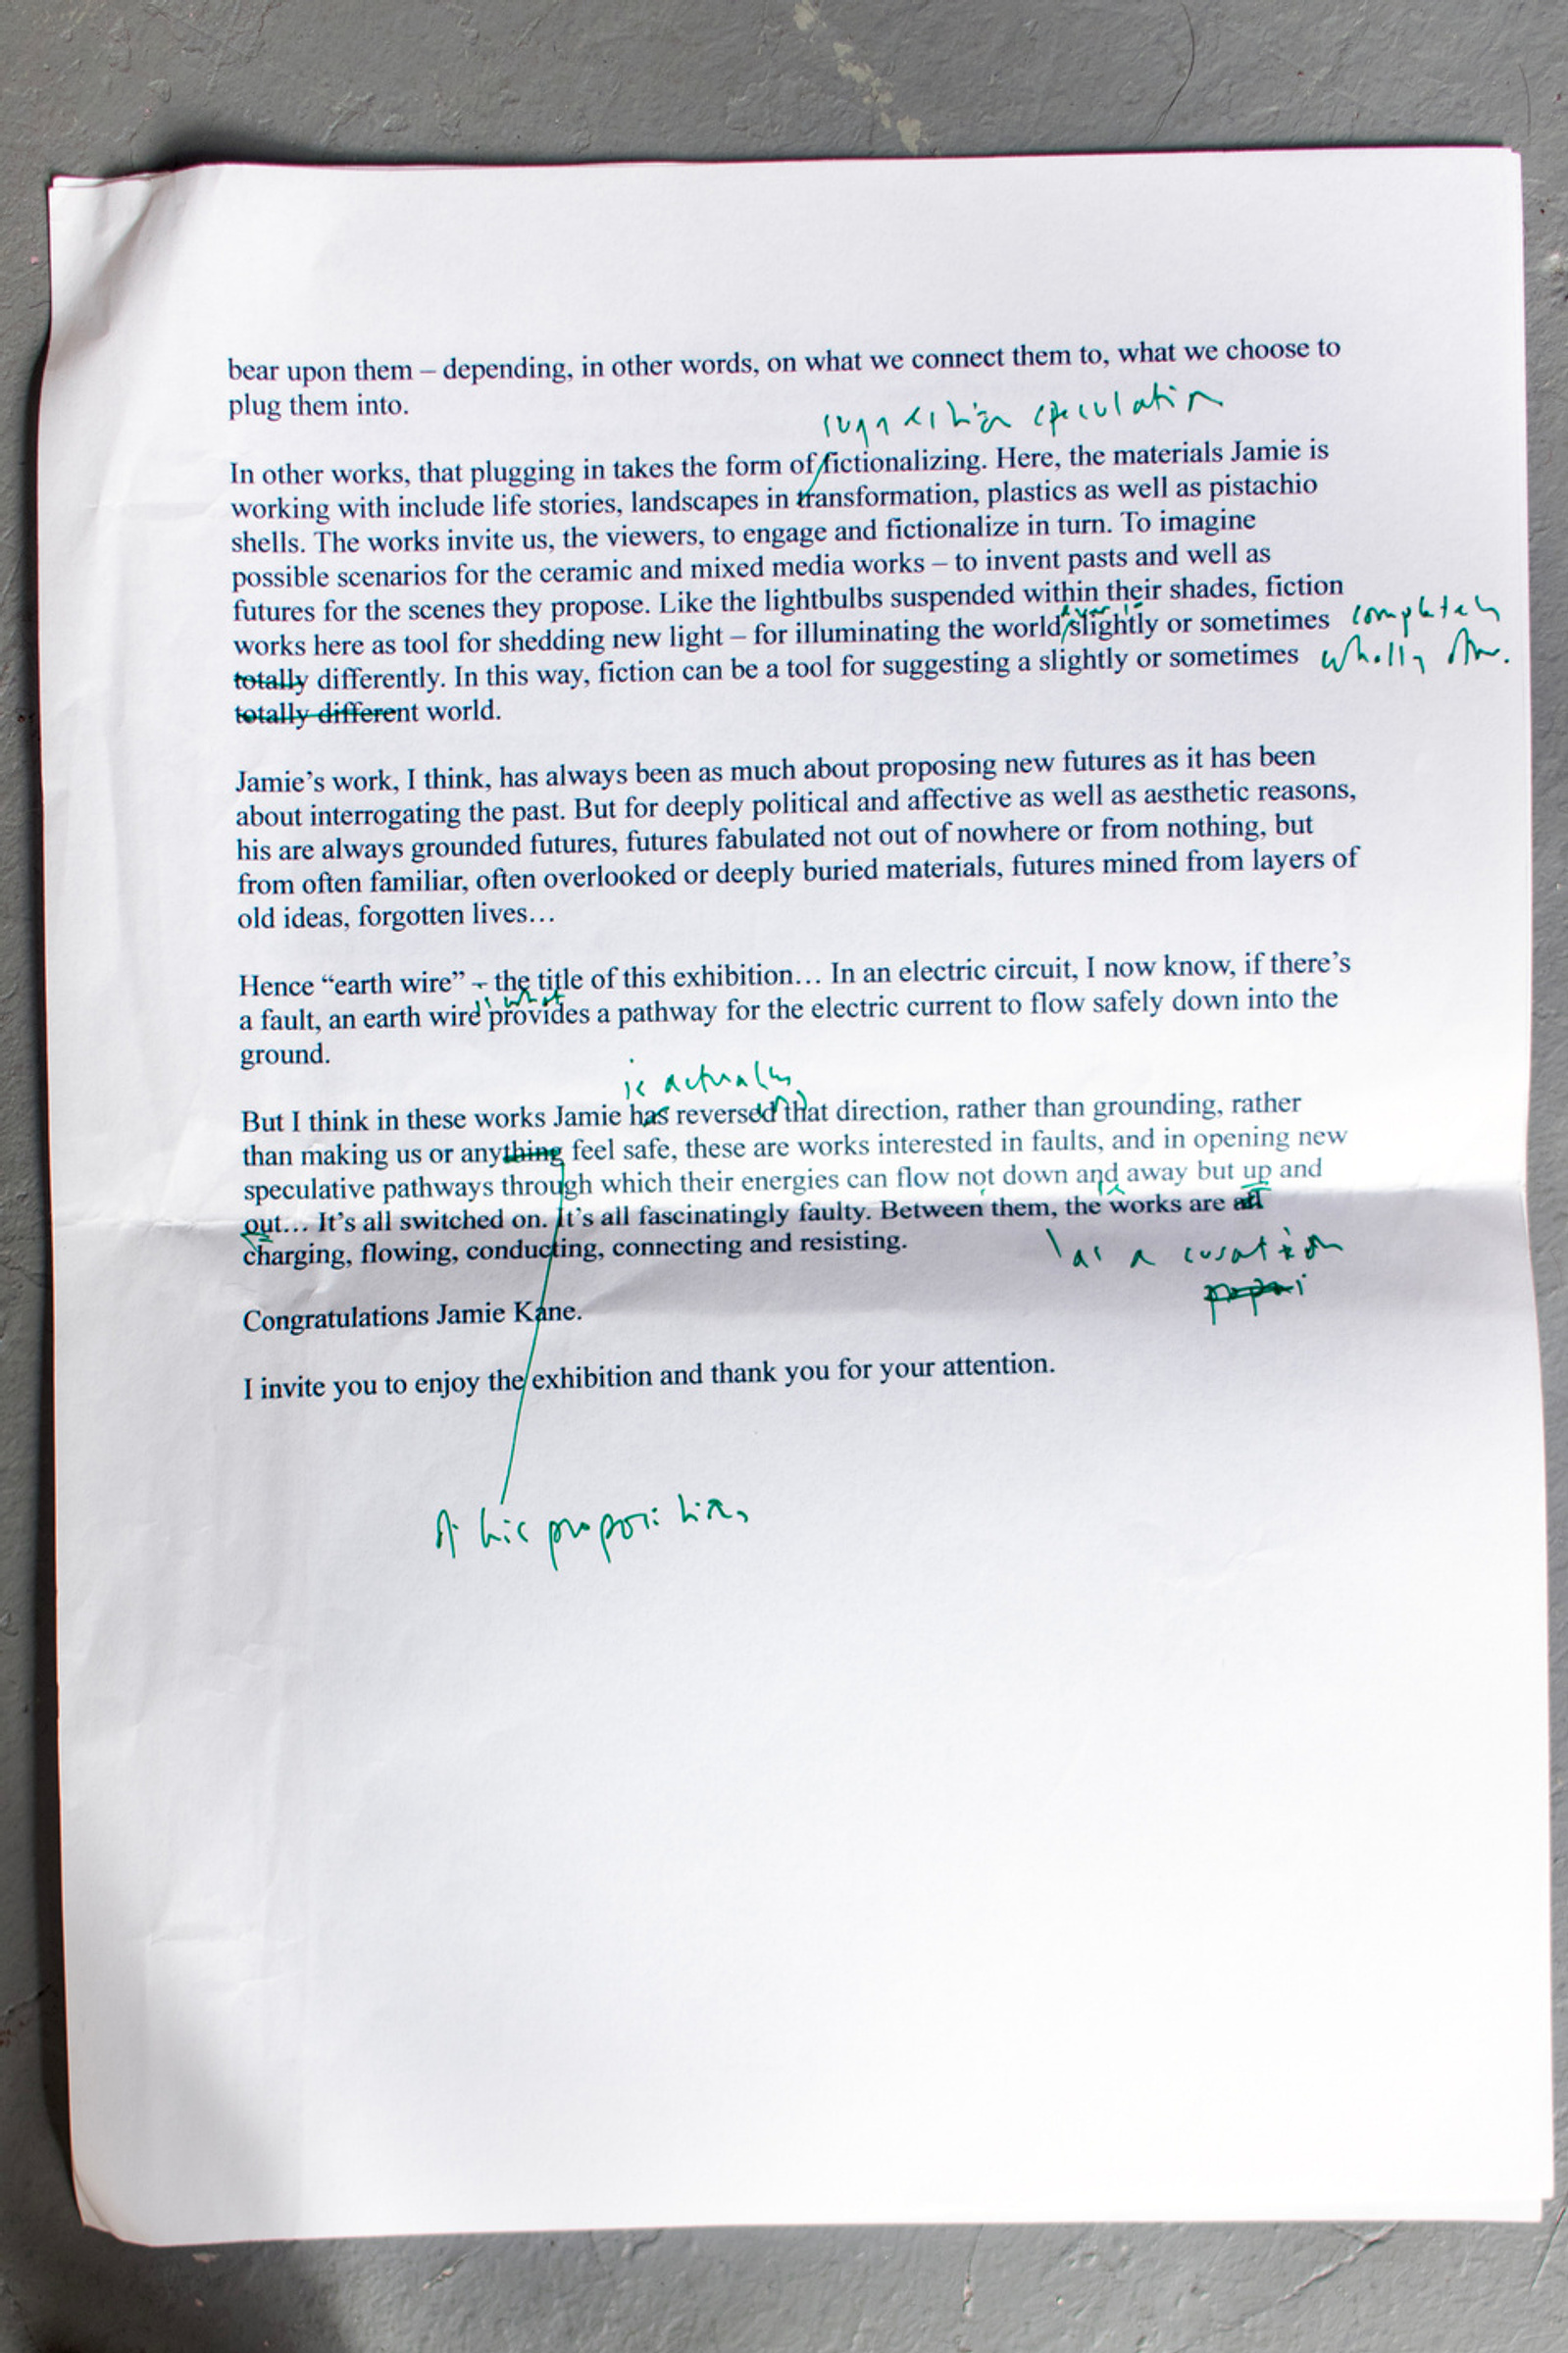 bear upon them – depending, in other words, on what we connect them to, what we choose to
plug them into.
suggestion speculation
In other works, that plugging in takes the form of fictionalizing. Here, the materials Jamie is
working with include life stories, landscapes in transformation, plastics as well as pistachio
shells. The works invite us, the viewers, to engage and fictionalize in turn. To imagine
possible scenarios for the ceramic and mixed media works – to invent pasts and well as
futures for the scenes they propose. Like the lightbulbs suspended within their shades, fiction
works here as tool for shedding new light – for illuminating the world slightly or sometimes completely
totally differently. In this way, fiction can be a tool for suggesting a slightly or sometimes wholly
totally different world.
Jamie’s work, I think, has always been as much about proposing new futures as it has been
about interrogating the past. But for deeply political and affective as well as aesthetic reasons,
his are always grounded futures, futures fabulated not out of nowhere or from nothing, but
from often familiar, often overlooked or deeply buried materials, futures mined from layers of
old ideas, forgotten lives…
Hence “earth wire” – the title of this exhibition… In an electric circuit, I now know, if there’s
what
a fault, an earth wire provides a pathway for the electric current to flow safely down into the
ground.
is actually
But I think in these works Jamie has reversed that direction, rather than grounding, rather
than making us or anything feel safe, these are works interested in faults, and in opening new
speculative pathways through which their energies can flow not down and away but up and
out… It’s all switched on. It’s all fascinatingly faulty. Between them, the works are all
charging, flowing, conducting, connecting and resisting.
as a
Congratulations Jamie Kane.
I invite you to enjoy the exhibition and thank you for your attention.
his propositions